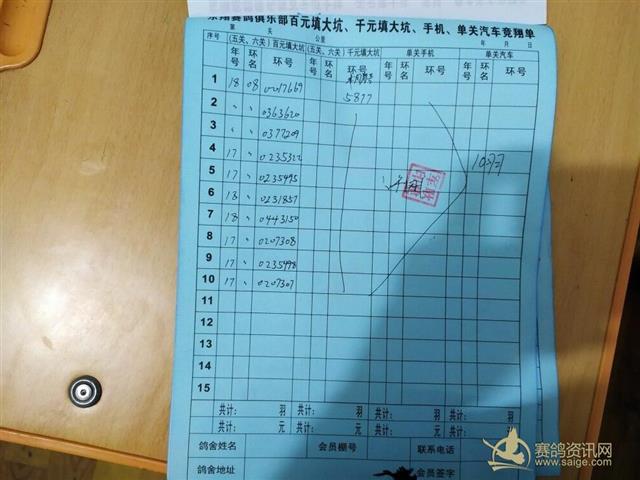 翔赛鸽俱乐部百元填大坑、千元填大坑、手机、单关汽车竞翔单
第 关 公里 年 月 日
序号 (五关、六关)百元填大坑 (五关、六关)千元填大坑 单关手机 单关汽车
年号 环名 环号 年号 环名 环号 年号 环名 环号 年号 环名 环号
1 18 08 0017669
2 〃 〃 0363620 5877
3 〃 〃 0377209
4 17 〃 0235322
5 17 〃 0235495
6 18 〃 0231857
7 18 〃 0443150
8 17 〃 0207308
9 17 〃 0235498
10 17 〃 0207307
11
12
13
14
15
共计: 羽 共计: 羽 共计: 羽 共计: 羽
共计: 元 共计: 元 共计: 元 共计: 元
鸽舍姓名 会员棚号 联系电话
鸽舍地址 会员签字
赛鸽资讯网
www.saige.com